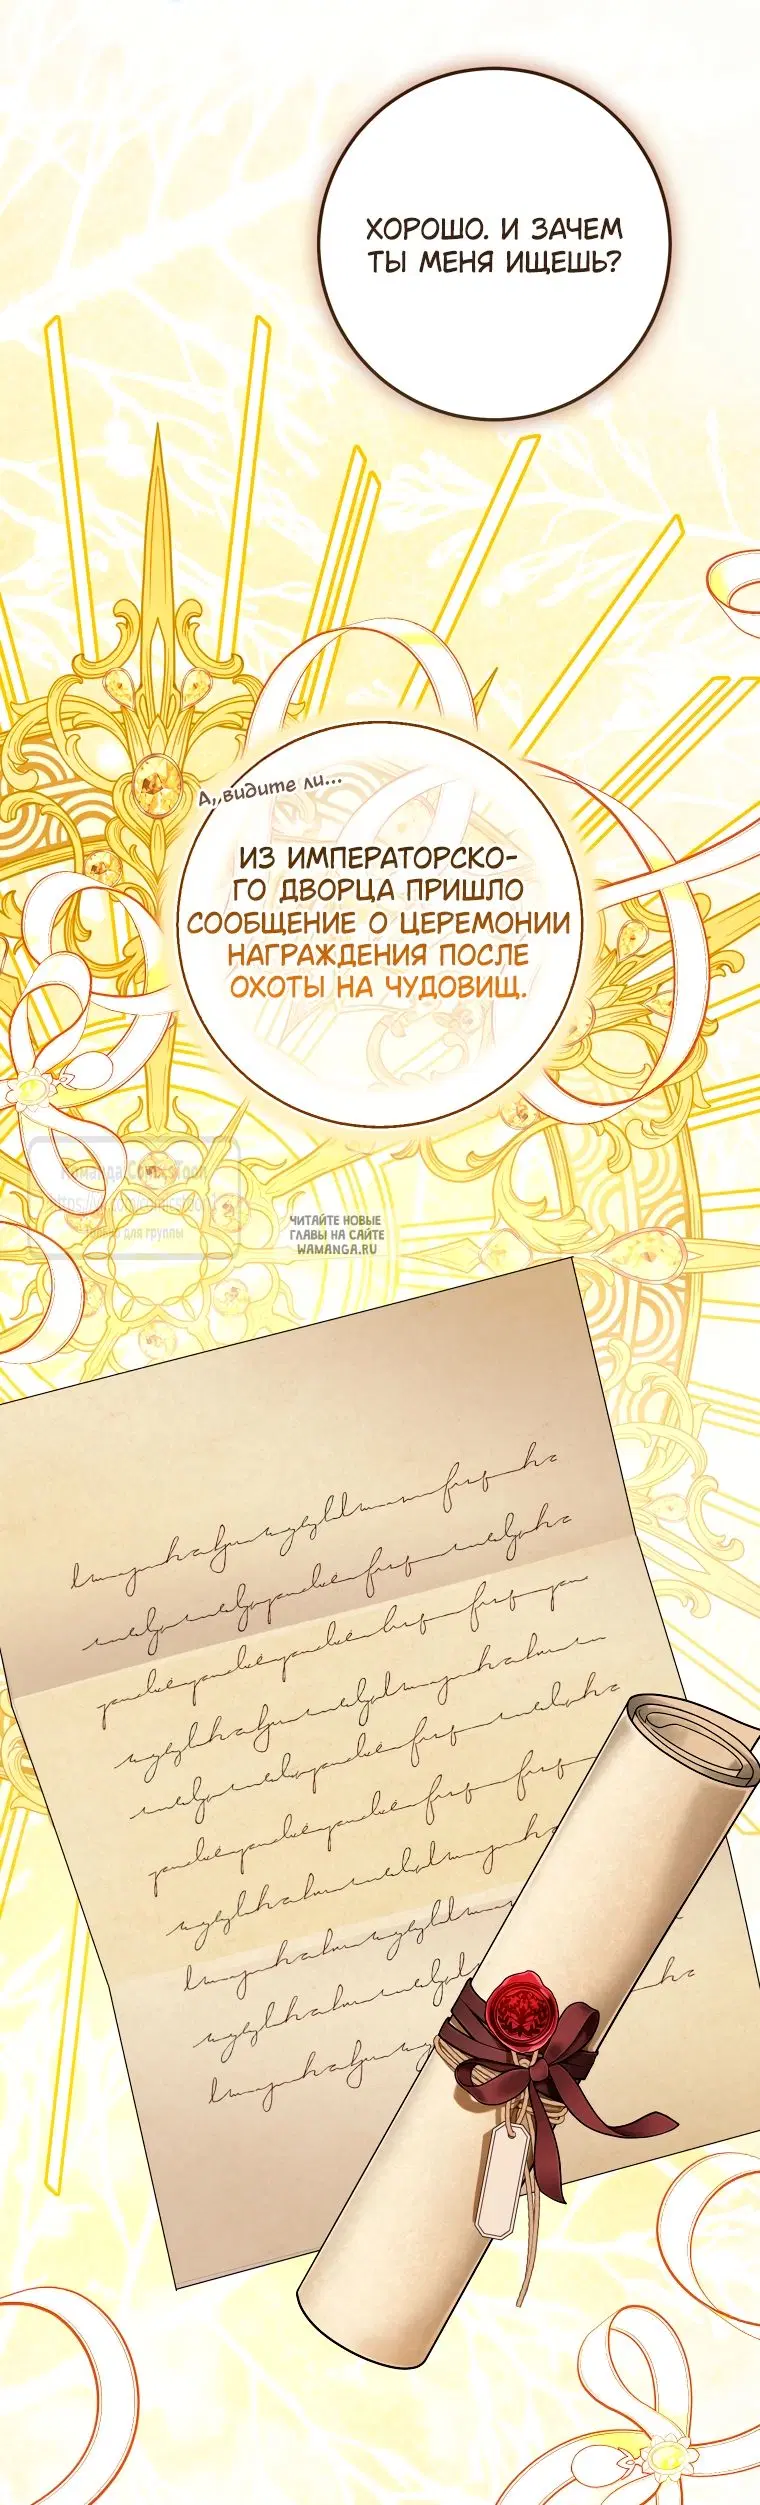 ХОРОШО. И ЗАЧЕМ
ТЫ МЕНЯ ИЩЕШЬ?
А, видите ли...
ИЗ ИМПЕРАТОРСКО-
ГО ДВОРЦА ПРИШЛО
СООБЩЕНИЕ О ЦЕРЕМОНИИ
НАГРАЖДЕНИЯ ПОСЛЕ
ОХОТЫ НА ЧУДОВИЩ.
Команда
для группы
ЧИТАЙТЕ НОВЫЕ
ГЛАВЫ НА САЙТЕ
WAMANGA.RU